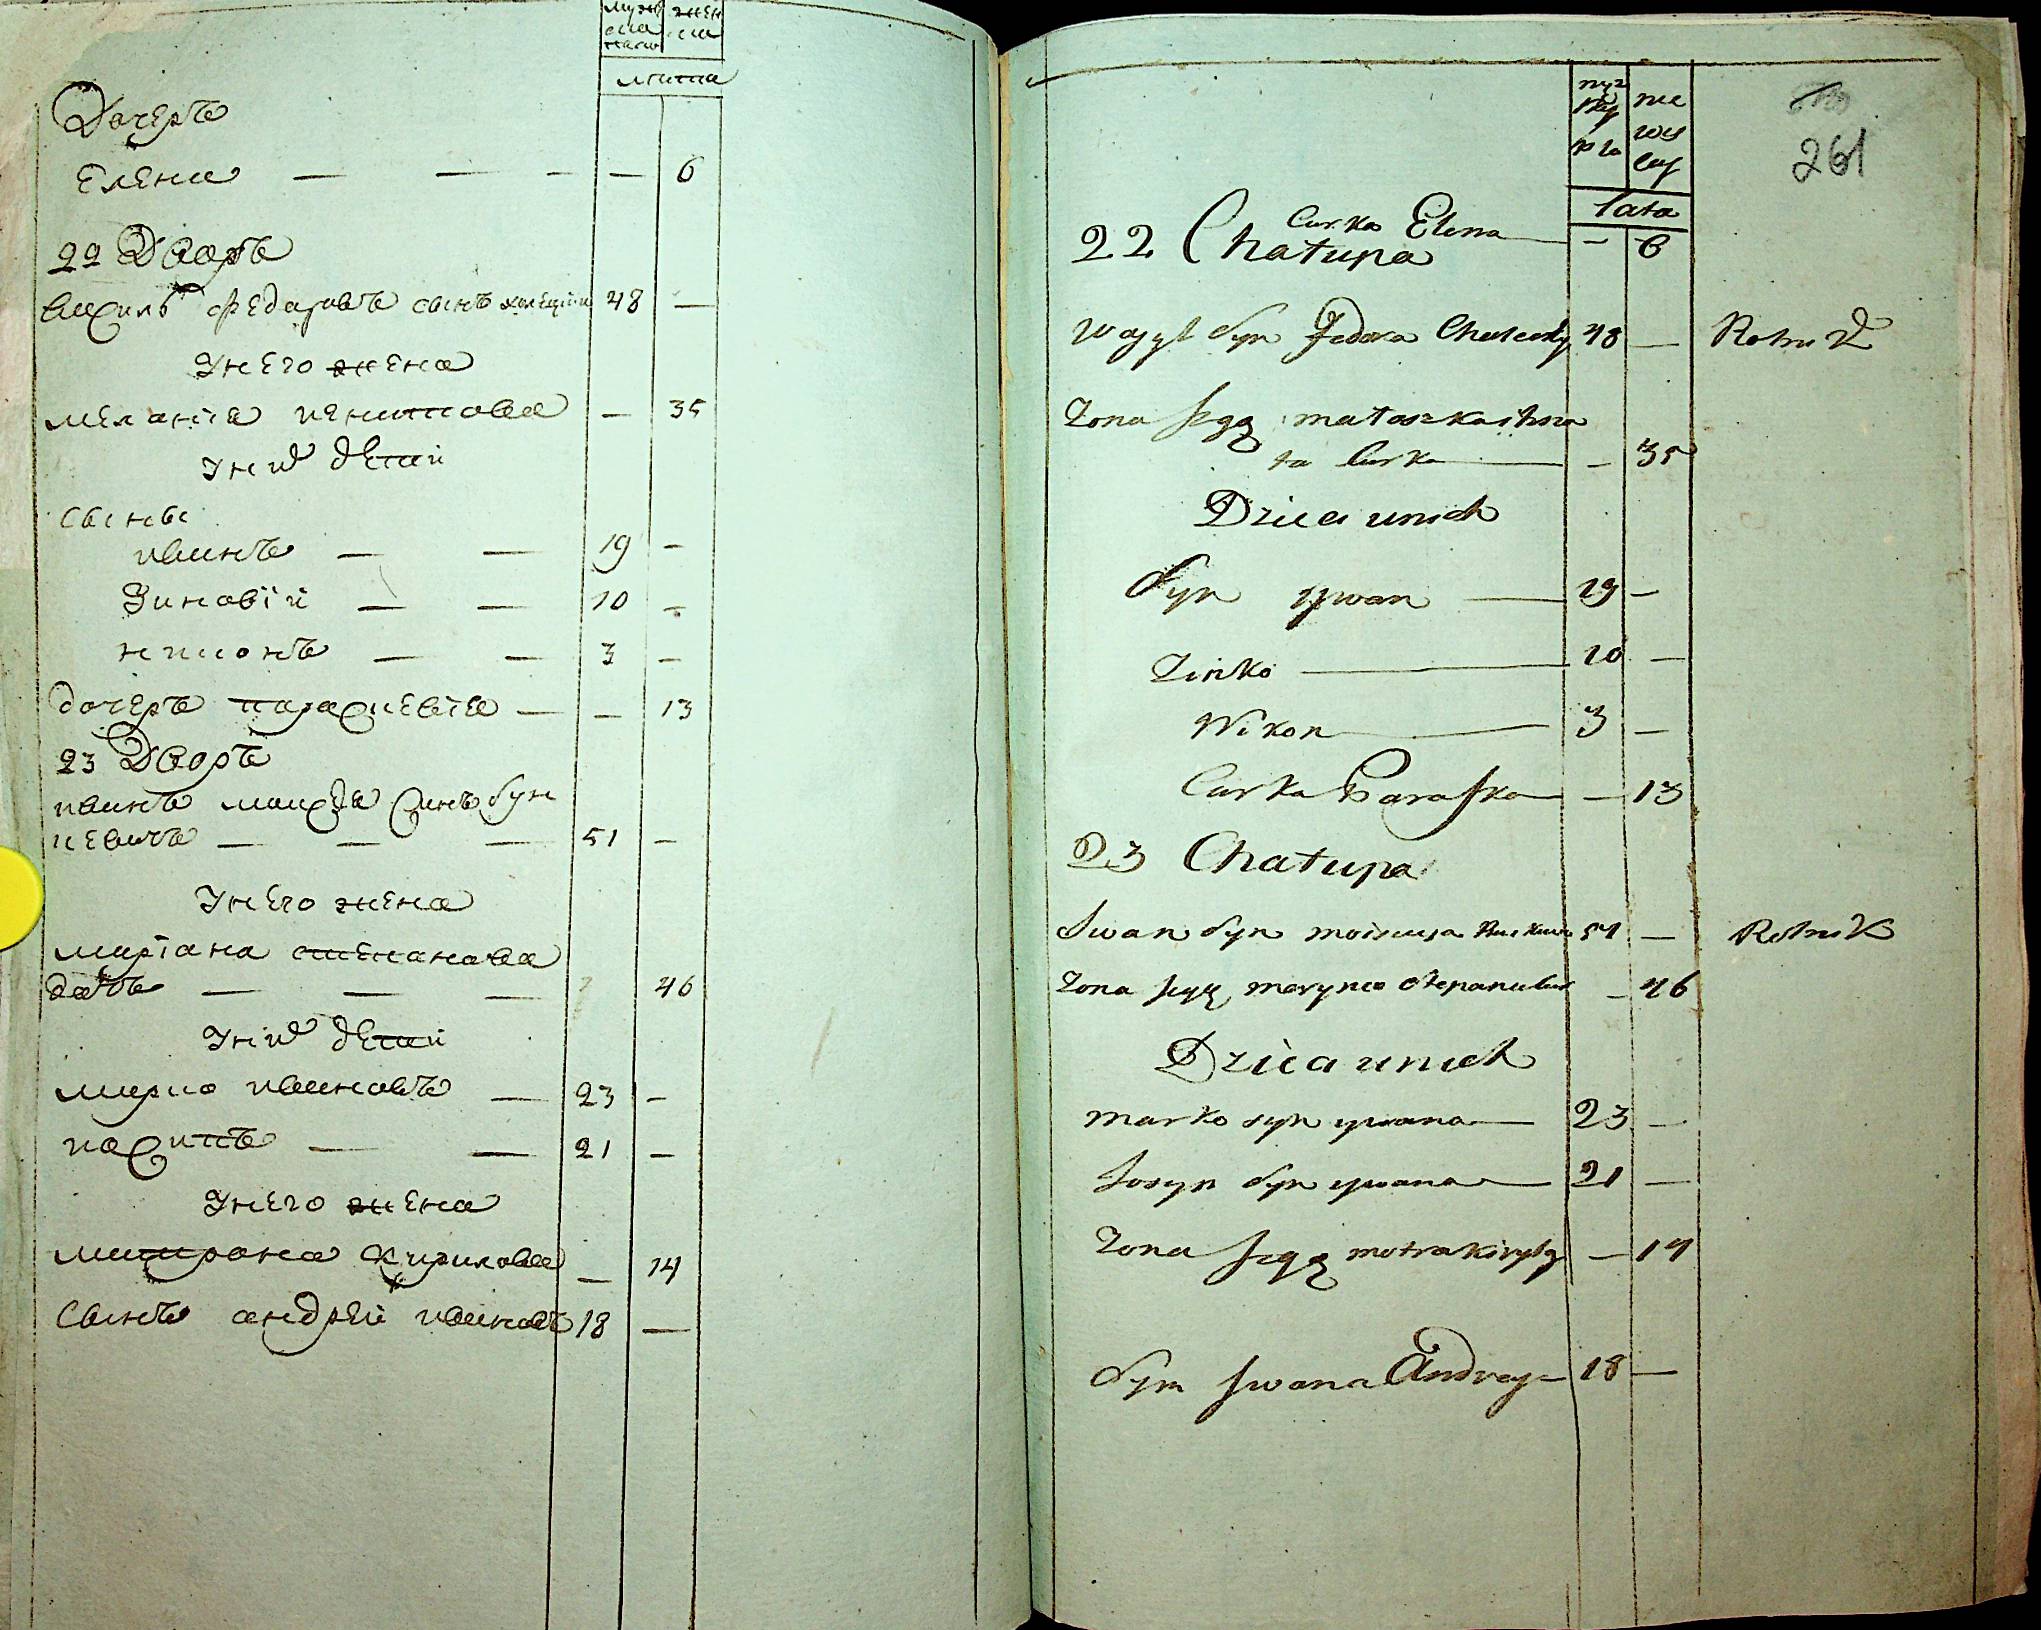 муж
ска
жен
ска
лѣта
Дочерь
Елена — — — — 6
22 Дворъ
Василь Федоровъ сынъ 48 —
У него жена
Меланія — 35
У них дѣти
Сыны
иванъ — — 19 —
Зиновій — — 10 —
никонъ — — 3 —
дочерь параскевія — — 13
23 Дворъ
иванъ моисѣя синъ бун
кевичъ — — — 51 —
У него жена
маріана степанова
дочь — — — 46
У них дѣти
марко ивановъ — 23 —
иосипъ — — 21 —
У него жена
матрона кирилова — 14
Сынъ андрей ивановъ 18 —
męz
ka
pla
nie
wis
ey
lata
261
Curka Elena — — 6
22 Chałupa
Wasyl Syn Fedora 48 — Rolnik
Zona Jego małaszka
ta Curka — — 35
Dzieci unich
Syn ywan — 19 —
Zinko — 10 —
Nikon — 3 —
Curka Paraska — — 13
23 Chałupa
Iwan Syn moiseja 51 — Rolnik
Zona jego maryna Stepana Cur — 46
Dzieci unich
marko syn ywana — 23 —
Josyp Syn ywana — 21 —
Zona Jego motra kiryly — 14
Syn Iwana Andrey — 18 —